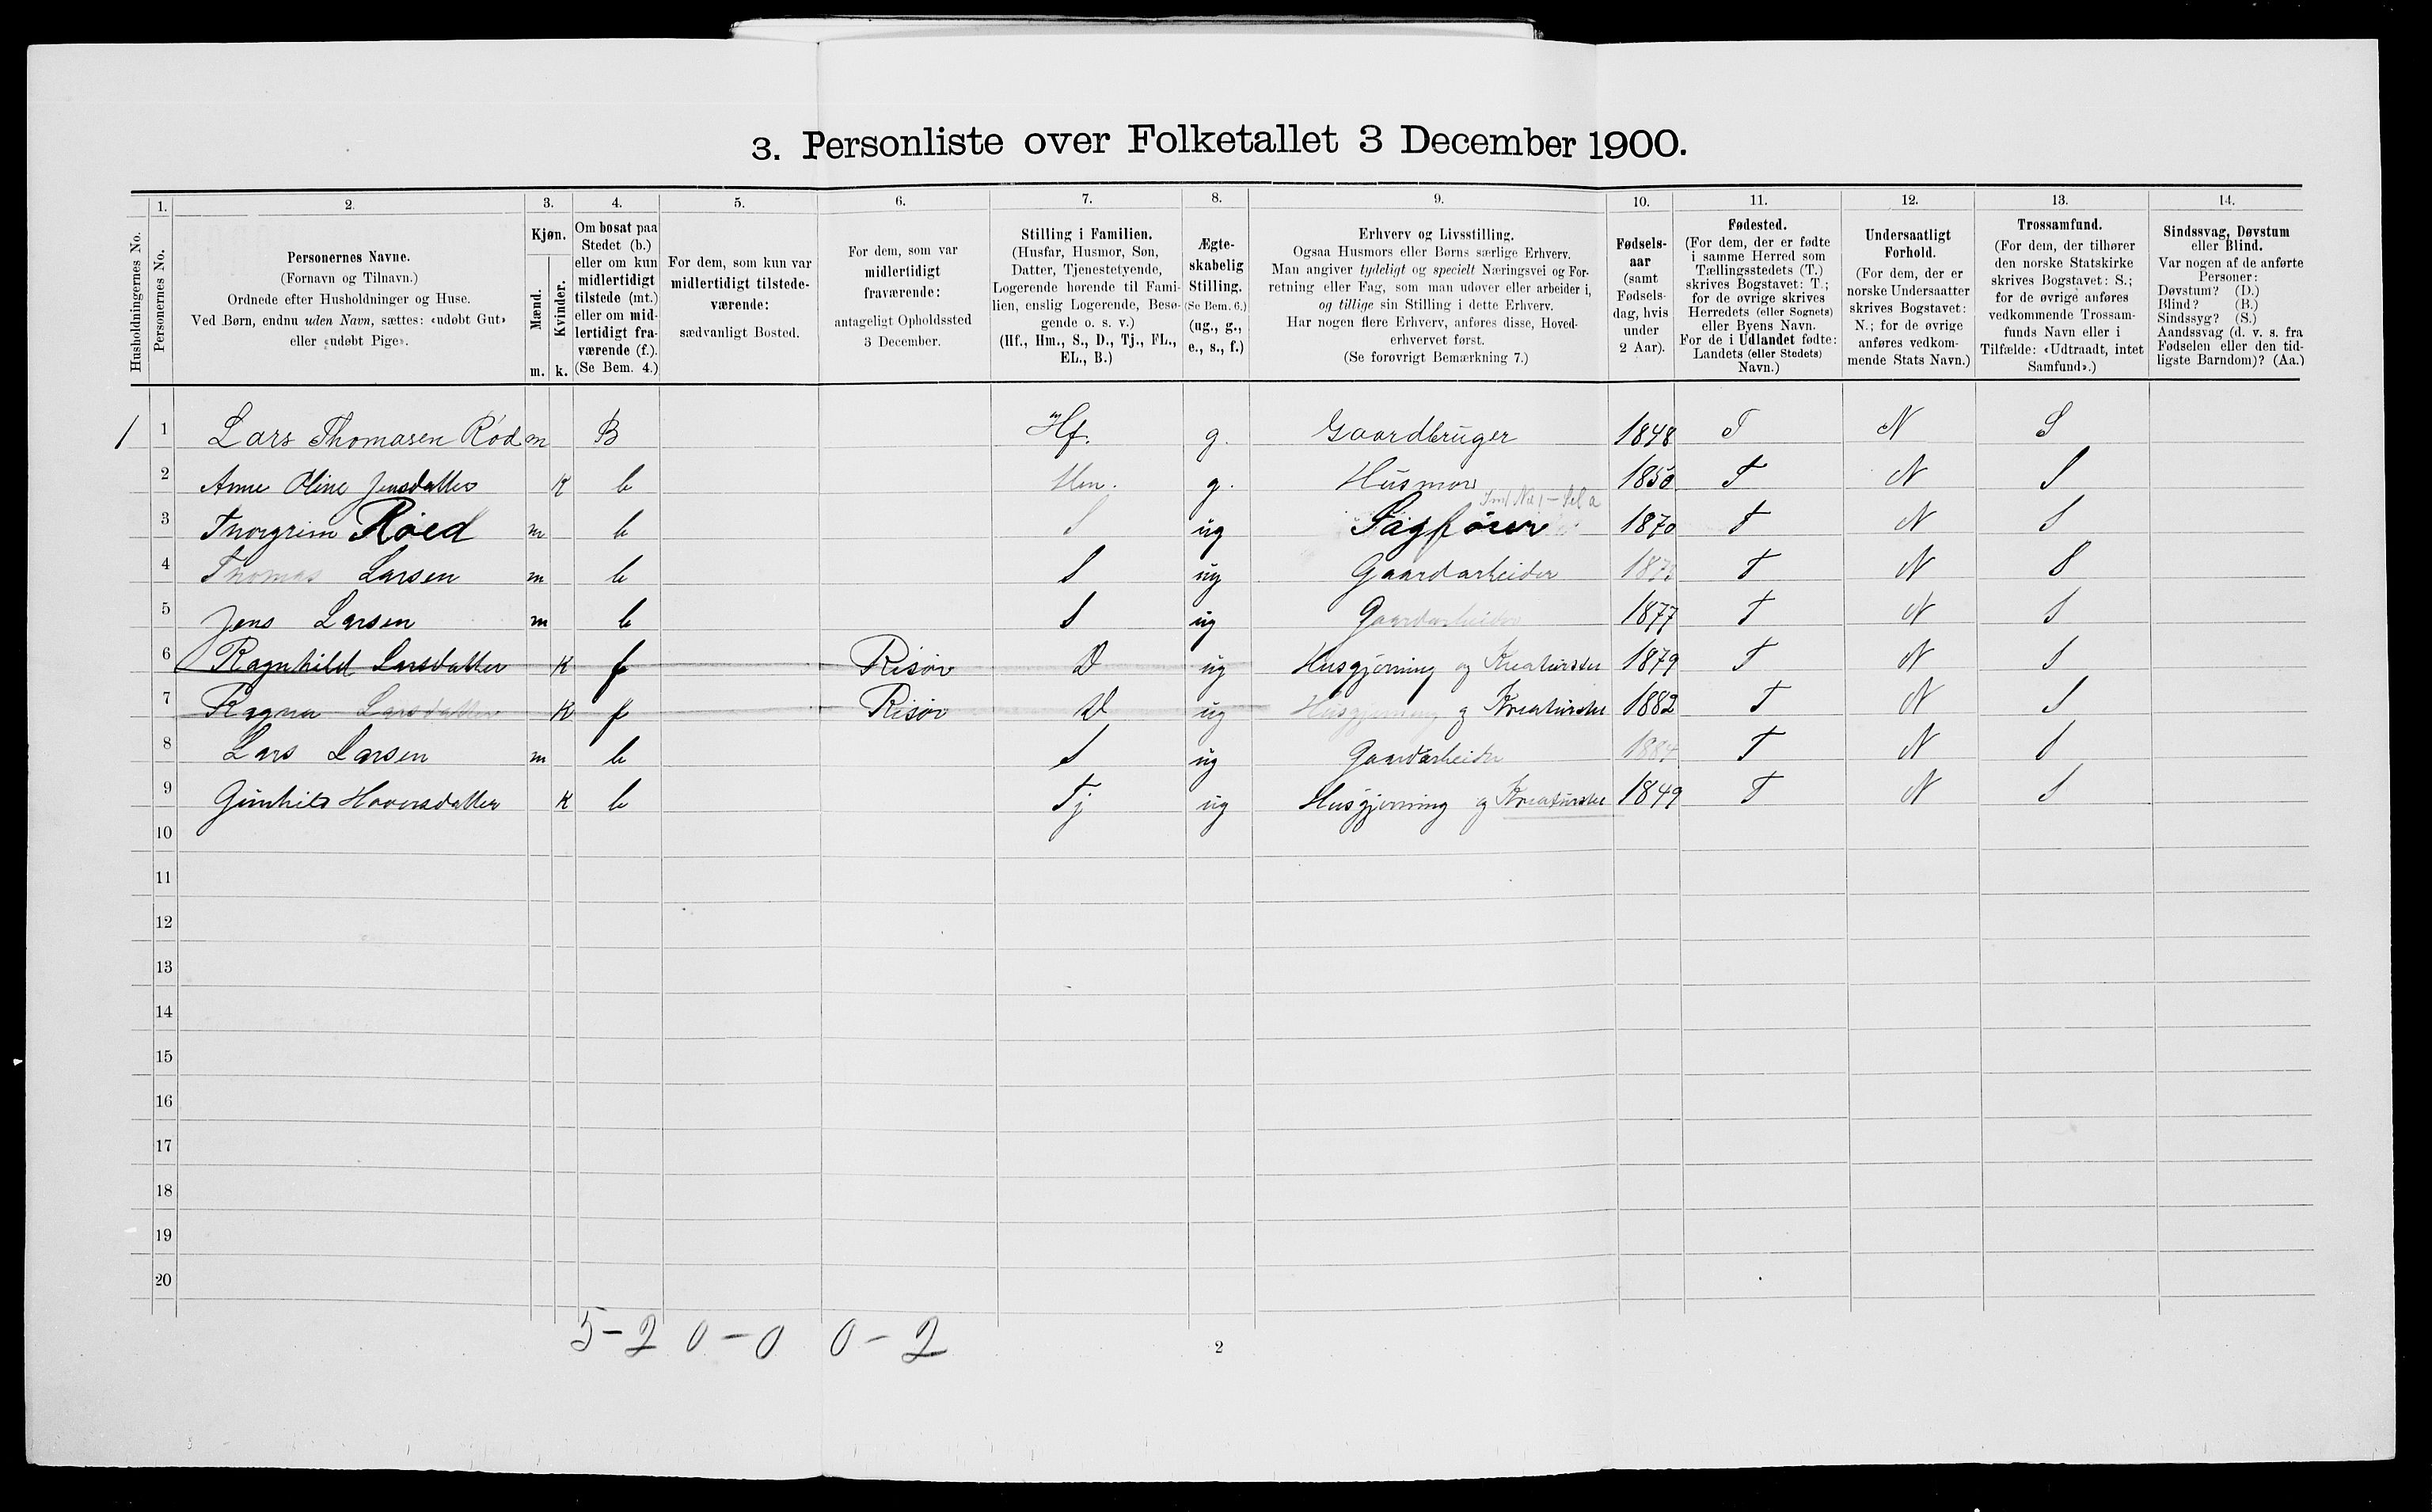 3. Personliste over Folketallet 3 December 1900.
Husholdningernes No.
1.
Personernes No.
2.
Personernes Navne.
(Fornavn og Tilnavn.)
Ordnede efter Husholdninger og Huse.
Ved Børn, endnu uden Navn, sættes: «udøbt Gut»
eller «udøbt Pige».
3.
Kjøn.
Mænd.
Kvinder.
m. k.
4.
Om bosat paa
Stedet (b.)
eller om kun
midlertidigt
tilstede (mt.)
eller om mid-
lertidigt fra-
værende (f.).
(Se Bem. 4.)
5.
For dem, som kun var
midlertidigt tilstede-
værende:
sædvanligt Bosted.
6.
For dem, som var
midlertidigt
fraværende:
antageligt Opholdssted
3 December.
7.
Stilling i Familien.
(Husfar, Husmor, Søn,
Datter, Tjenestetyende,
Logerende hørende til Fami-
lien, enslig Logerende, Besø-
gende o. s. v.)
(Hf., Hm., S., D., Tj., FL.,
EL., B.)
8.
Ægte-
skabelig
Stilling.
(Se Bem. 6.)
(ug., g.,
e., s., f.)
9.
Erhverv og Livsstilling.
Ogsaa Husmors eller Børns særlige Erhverv.
Man angiver tydeligt og specielt Næringsvei og For-
retning eller Fag, som man udøver eller arbeider i,
og tillige sin Stilling i dette Erhverv.
Har nogen flere Erhverv, anføres disse, Hoved-
erhvervet først.
(Se forøvrigt Bemærkning 7.)
10.
Fødsels-
aar
(samt
Fødsels-
dag, hvis
under
2 Aar).
11.
Fødested.
(For dem, der er fødte
i samme Herred som
Tællingsstedets (T.)
skrives Bogstavet: T.;
for de øvrige skrives
Herredets (eller Sognets)
eller Byens Navn.
For de i Udlandet fødte:
Landets (eller Stedets)
Navn.)
12.
Undersaatligt
Forhold.
(For dem, der er
norske Undersaatter
skrives Bogstavet:
N.; for de øvrige
anføres vedkom-
mende Stats Navn.)
13.
Trossamfund.
(For dem, der tilhører
den norske Statskirke
skrives Bogstavet: S.;
for de øvrige anføres
vedkommende Trossam-
funds Navn eller i
Tilfælde: «Udtraadt, intet
Samfund».)
14.
Sindssvag, Døvstum
eller Blind.
Var nogen af de anførte
Personer:
Døvstum? (D.)
Blind? (B.)
Sindssyg? (S.)
Aandssvag (d. v. s. fra
Fødselen eller den tid-
ligste Barndom)? (Aa.)
1 1 Lars Thomasen Rød m B Hf. g. Gaardbruger 1848 T N S
2 Anne Oline Jensdatter K b Hm. g. Husmor 1850 T N S
3 Thorgrim Røed m b S ug Sagfører 1870 T N S
4 Thomas Larsen m b S ug Gaardarbeider T N S
5 Jens Larsen m b S ug Gaardarbeider 1877 T N S
6 Ragnhild Larsdatter K f Risør D ug Husgjerning og Kreaturstel 1879 T N S
7 Ragna Larsdatter K f Risør D ug Husgjerning og Kreaturstel 1882 T N S
8 Lars Larsen m b S ug Gaardarbeider 1884 T N S
9 Gunhild Hovorsdatter K b Tj ug Husgjerning og Kreaturstel 1849 T N S
10
11
12
13
14
15
16
17
18
19
20
5-2 0-0 0-2
2